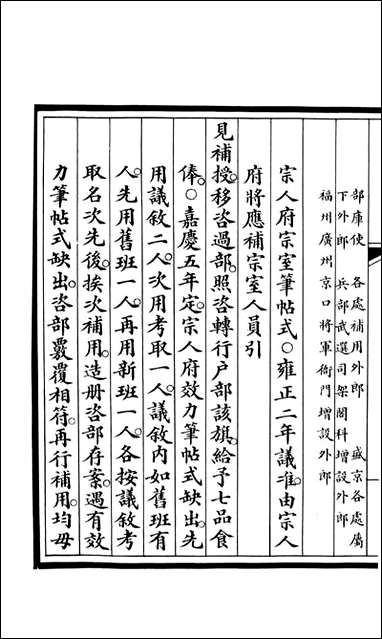 部庫使　各處補用外郎　盛京各處屬
下外郎　兵部武選司架閣科增設外郎
福州廣州京口將軍衙門增設外郎
宗人府宗室筆帖式○雍正二年議准由宗人
府將應補宗室人員引
見補授移咨過部照咨轉行戶部該旗給予七品食
俸○嘉慶五年定宗人府效力筆帖式缺出先
用議敘二人次用考取一人議敘內如舊班有
人先用舊班一人再用新班一人各按議敘考
取名次先後挨次補用造册咨部存案遇有效
力筆帖式缺出咨部覈覆相符再行補用均毋